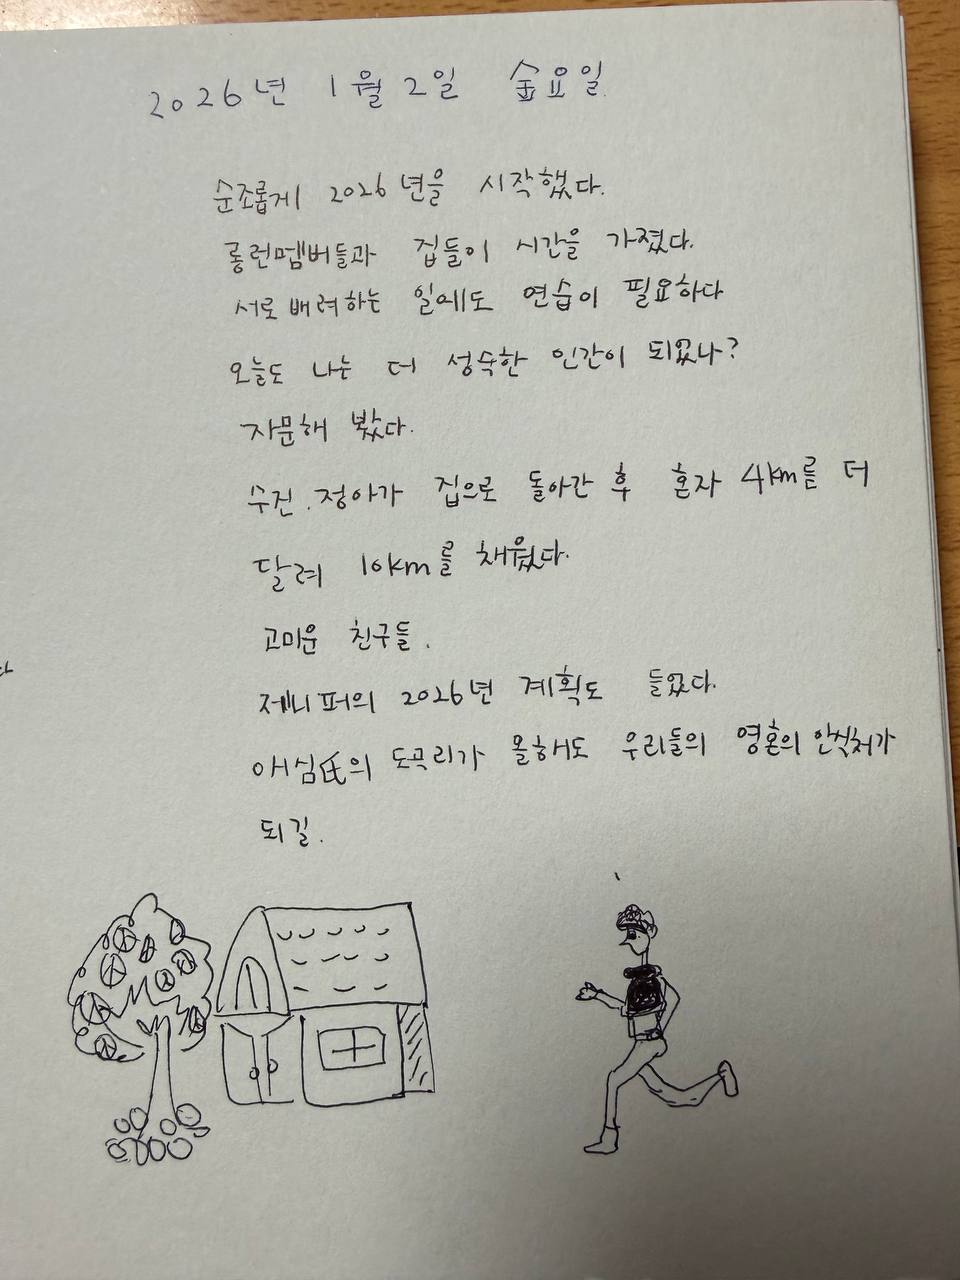 2026년 1월 2일 金요일
순조롭게 2026년을 시작했다.
롱런멤버들과 집들이 시간을 가졌다.
서로 배려하는 일에도 연습이 필요하다
오늘도 나는 더 성숙한 인간이 되었나?
자문해 봤다.
수진.정아가 집으로 돌아간 후 혼자 4km를 더
달려 10km를 채웠다.
고마운 친구들.
제니퍼의 2026년 계획도 들었다.
애심氏의 도곡리가 올해도 우리들의 영혼의 안식처가
되길.